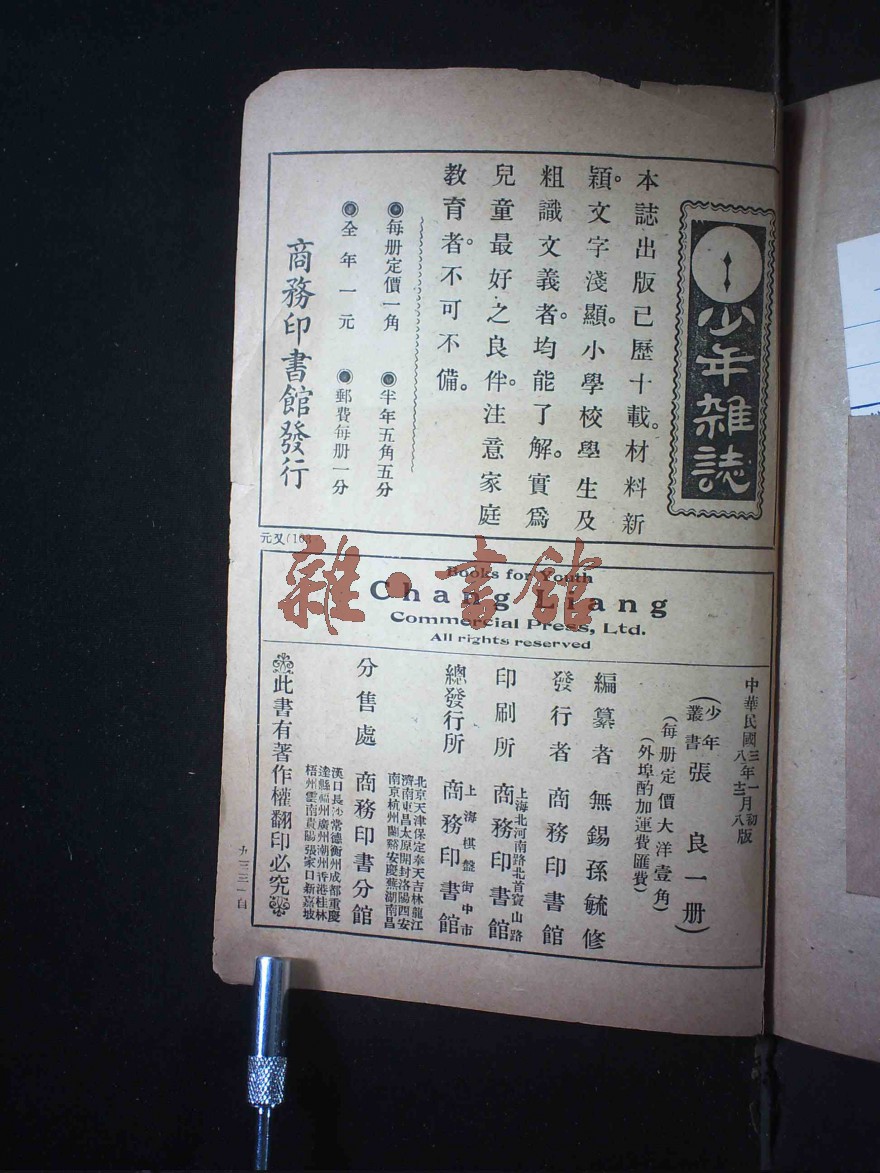 少年雜誌
本誌出版已歷十載。材料新
穎。文字淺顯。小學校學生及
粗識文義者。均能了解。實爲
兒童最好之良伴。注意家庭
教育者。不可不備。
◉每册定價一角 ◉半年五角五分
◉全年一元 ◉郵費每册一分
商務印書館發行
元又(103
雜·書館
Books for Youth
Chang Liang
Commercial Press, Ltd.
All rights reserved
中華民國三年一月初版
八年十二月八版
(少年叢書張良一册)
(每册定價大洋壹角)
(外埠酌加運費匯費)
編纂者 無錫孫毓修
發行者 商務印書館
印刷所 上海北河南路北首寶山路 商務印書館
總發行所 上海棋盤街中市 商務印書館
分售處 商務印書分館
北京天津保定奉天吉林龍江
濟南東昌太原開封洛陽西安
南京杭州蘭谿安慶蕪湖南昌
漢口長沙常德衡州成都重慶
福州廣州潮州香港桂林
梧州雲南貴陽張家口新嘉坡
此書有著作權翻印必究